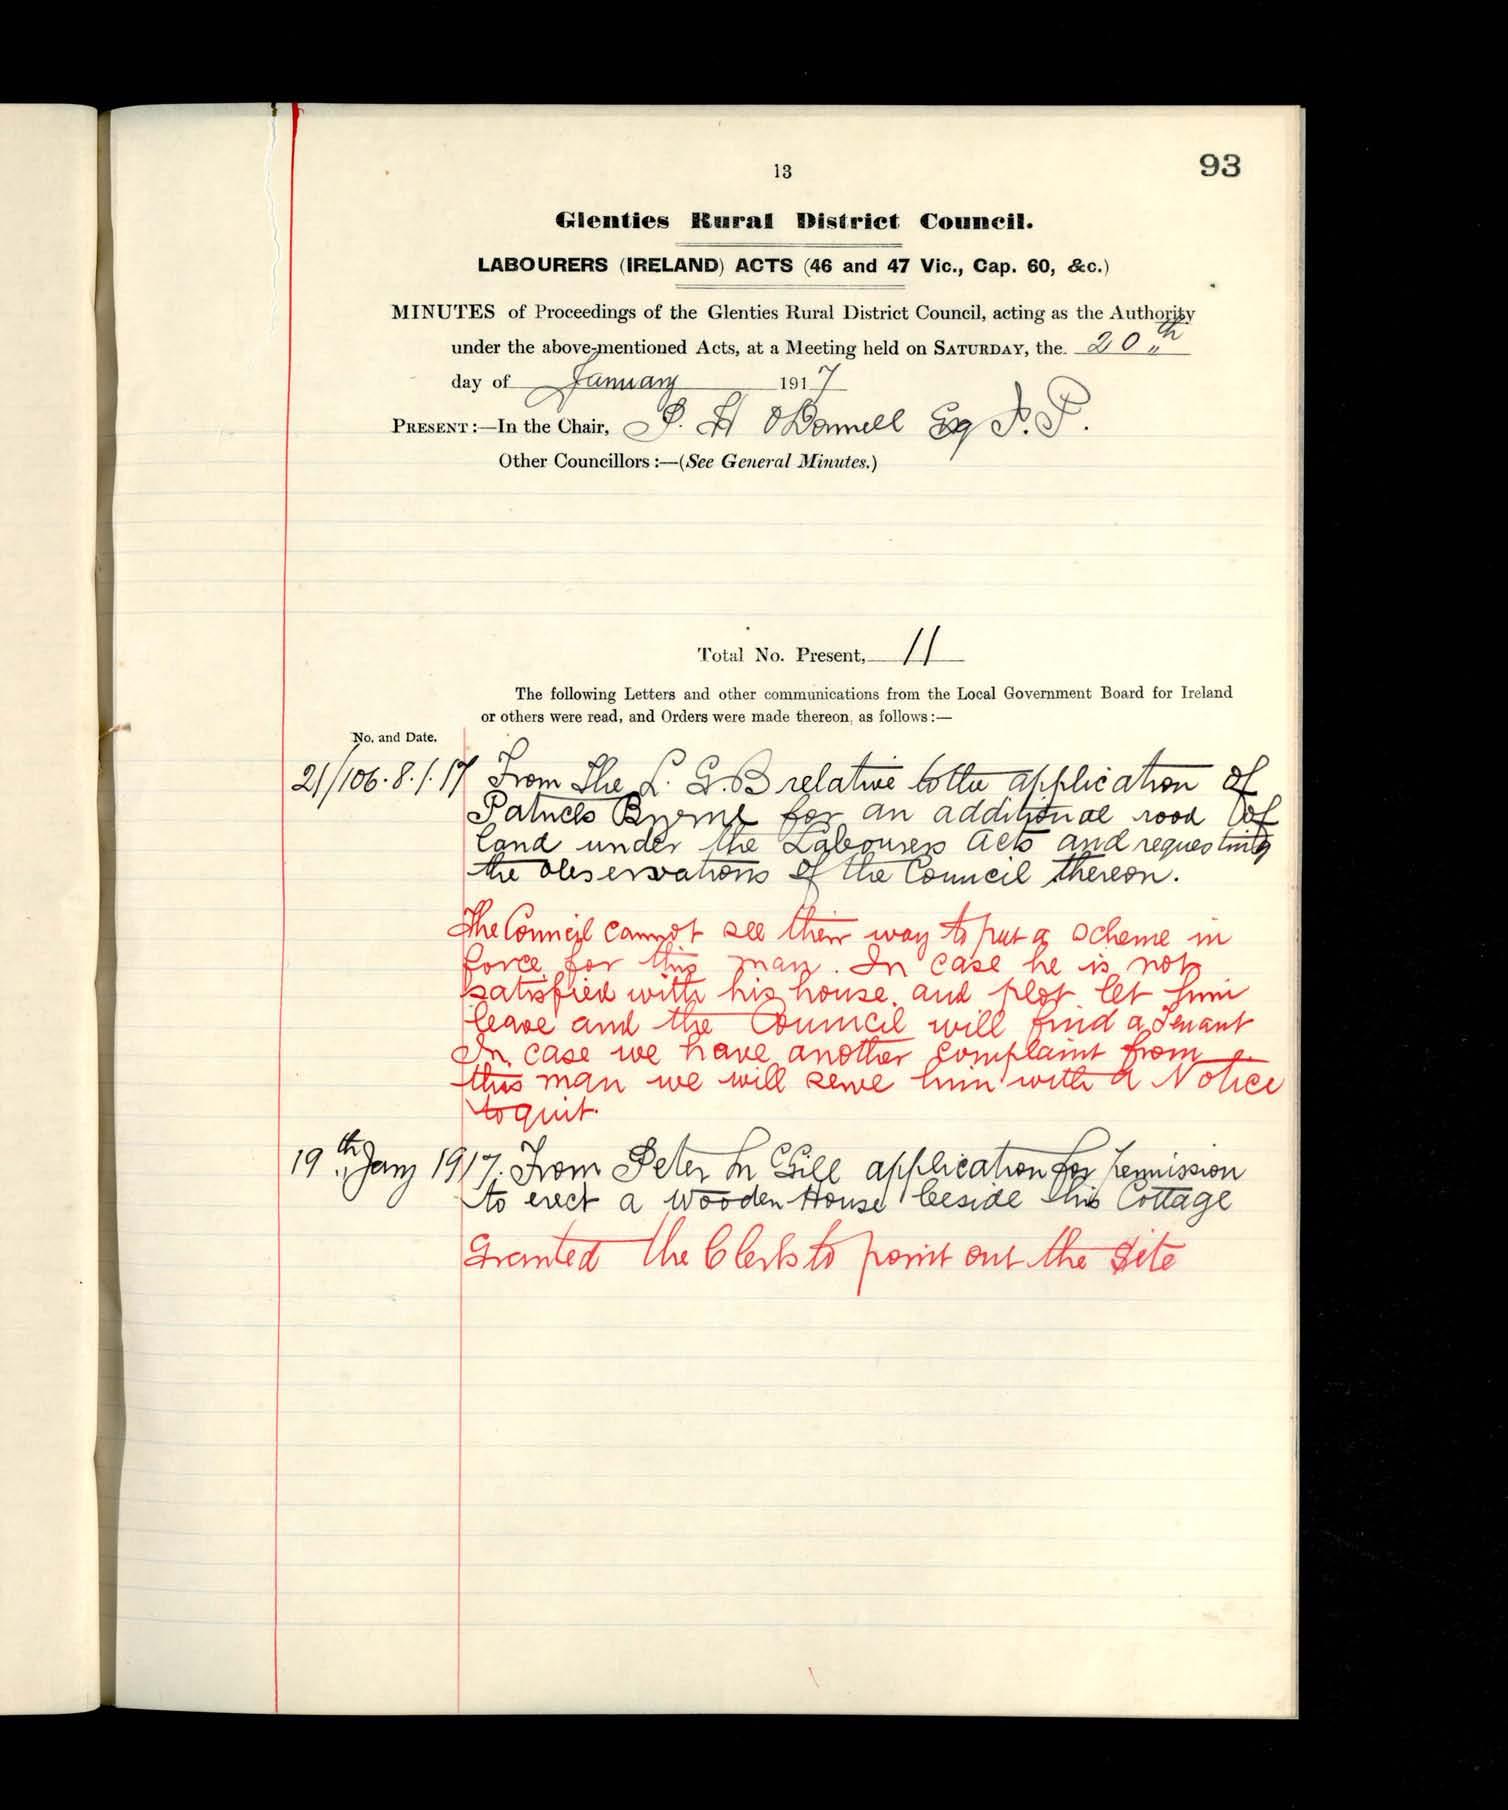 13
93
Glenties Rural District Council.
LABOURERS (IRELAND) ACTS (46 and 47 Vic., Cap. 60, &c.)
MINUTES of Proceedings of the Glenties Rural District Council, acting as the Authority
under the above-mentioned Acts, at a Meeting held on SATURDAY, the 20th
day of January 1917
PRESENT:—In the Chair, P. H O'Donnell Esq J. P.
Other Councillors:—(See General Minutes.)
Total No. Present, 11
The following Letters and other communications from the Local Government Board for Ireland
or others were read, and Orders were made thereon, as follows:—
No. and Date.
21/106. 8.1.17 From The L. G. B relative to the application of
Patrick Byrne for an additional rood of
land under the Labourers Acts and requesting
the observations of the Council thereon.
The Council cannot see their way to put a scheme in
force for this man. In case he is not
satisfied with his house and plot let him
leave and the Council will find a Tenant
In case we have another complaint from
this man we will serve him with a Notice
to quit.
19th Jany 1917. From Peter McGill application for permission
to erect a wooden House beside his Cottage
Granted the Clerk to point out the Site